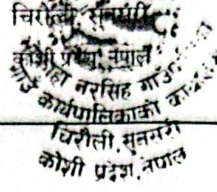 चिरौली, सुनसरी
कोशी प्रदेश, नेपाल
नरसिंह गाउँ
गाउँ कार्यपालिकाको
चिरौली, सुनसरी
कोशी प्रदेश, नेपाल